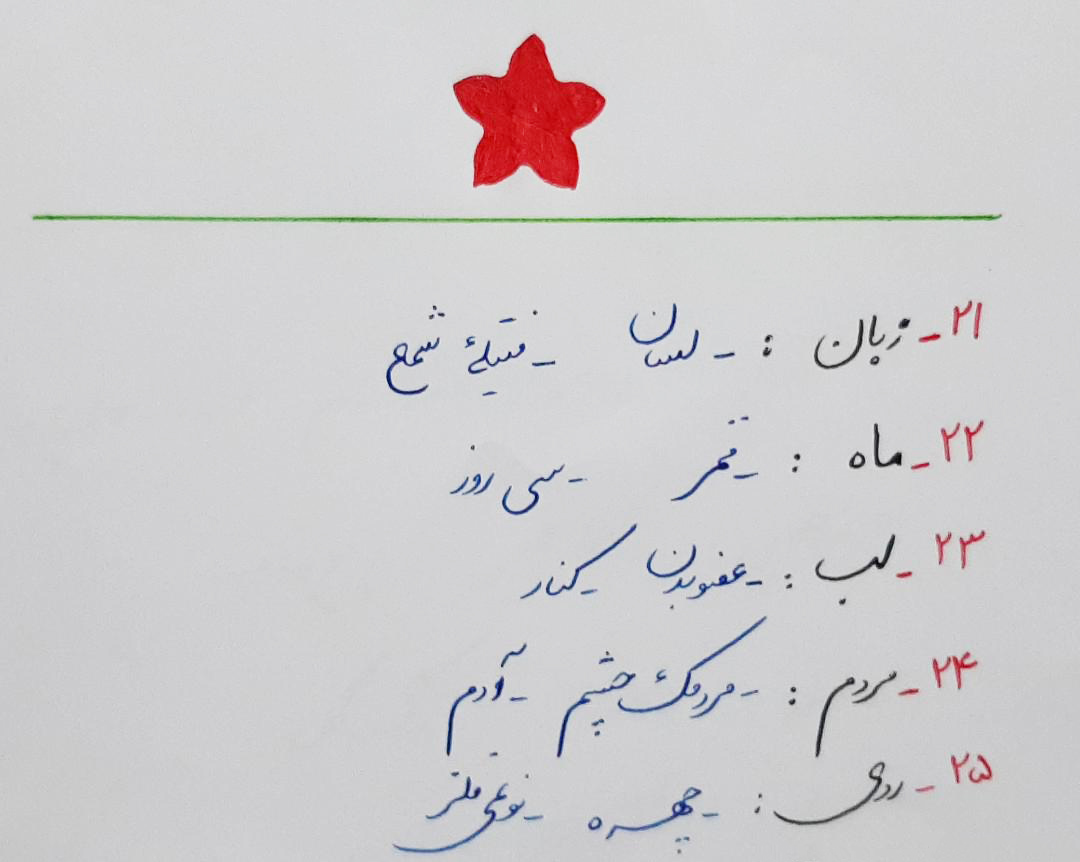 ۲۱- زبان : - لسان - فتیلۀ شمع
۲۲- ماه : - قمر - سی روز
۲۳- لب : - عضو بدن - کنار
۲۴- مردم : - مردمک چشم - آدم
۲۵- روی : - چهره - نوعی فلز